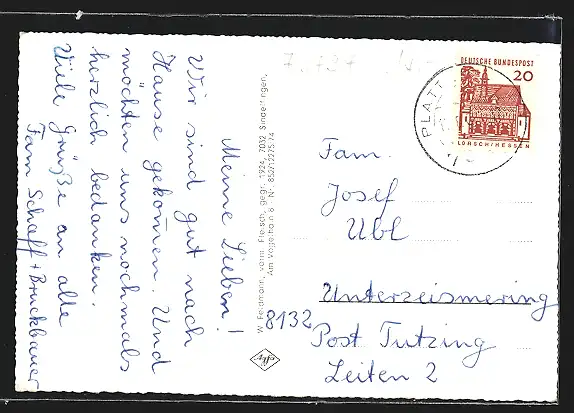 Meine Lieben!
Wir sind gut nach
Hause gekommen. Und
möchten uns nochmals
herzlich bedanken.
Viele Grüße an alle
Fam Schaff + Bruckbauer
W. Feldmann, vorm. Fleisch, gegr. 1924, 7032 Sindelfingen,
Am Vogelhain 8 - Nr. 852/12275 74
Agfa
DEUTSCHE BUNDESPOST
20
LORSCH/HESSEN
PLATT
Fam.
Josef
Ubl
Unterzeismering
8132 Post Tutzing
Leiten 2